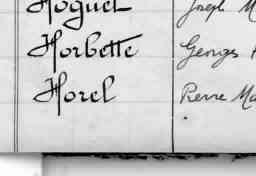 Hoguet Joseph
Horbette Georges
Horel Pierre